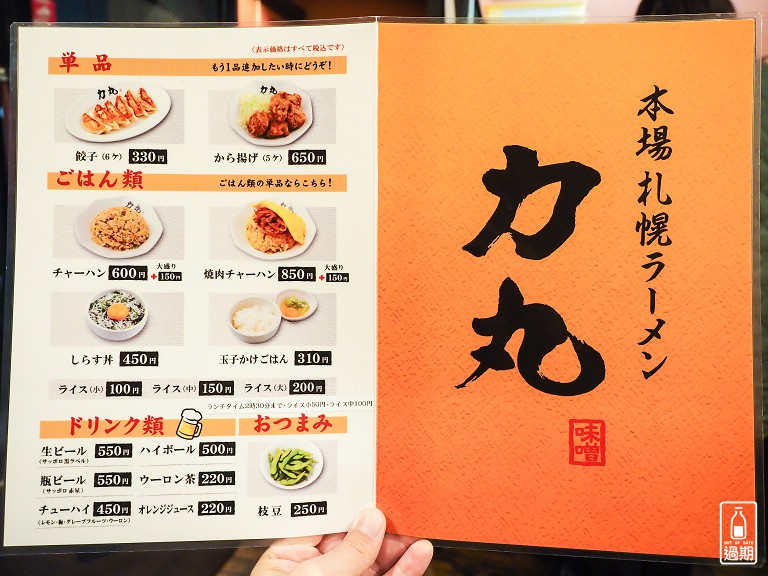 〈表示価格はすべて税込です〉
単品 もう1品追加したい時にどうぞ!
力丸
力丸
餃子(6ケ) 330円
から揚げ(5ケ) 650円
ごはん類 ごはん類の単品ならこちら!
力丸
力丸
チャーハン 600円 大盛り+150円
焼肉チャーハン 850円 大盛り+150円
しらす丼 450円
玉子かけごはん 310円
ライス(小) 100円 ライス(中) 150円 ライス(大) 200円
ランチタイム2時30分まで・ライス小50円・ライス中100円
ドリンク類
生ビール 550円
(サッポロ黒ラベル)
ハイボール 500円
瓶ビール 550円
(サッポロ赤星)
ウーロン茶 220円
チューハイ 450円
(レモン・梅・グレープフルーツ・ウーロン)
オレンジジュース 220円
おつまみ
枝豆 250円
本場札幌ラーメン
力丸
味噌
OUT OF DATE
過期